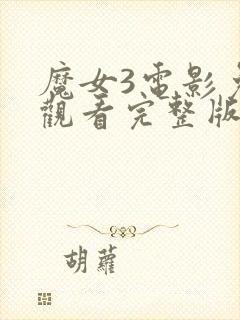 魔女3電影
觀看完整版
胡蘿